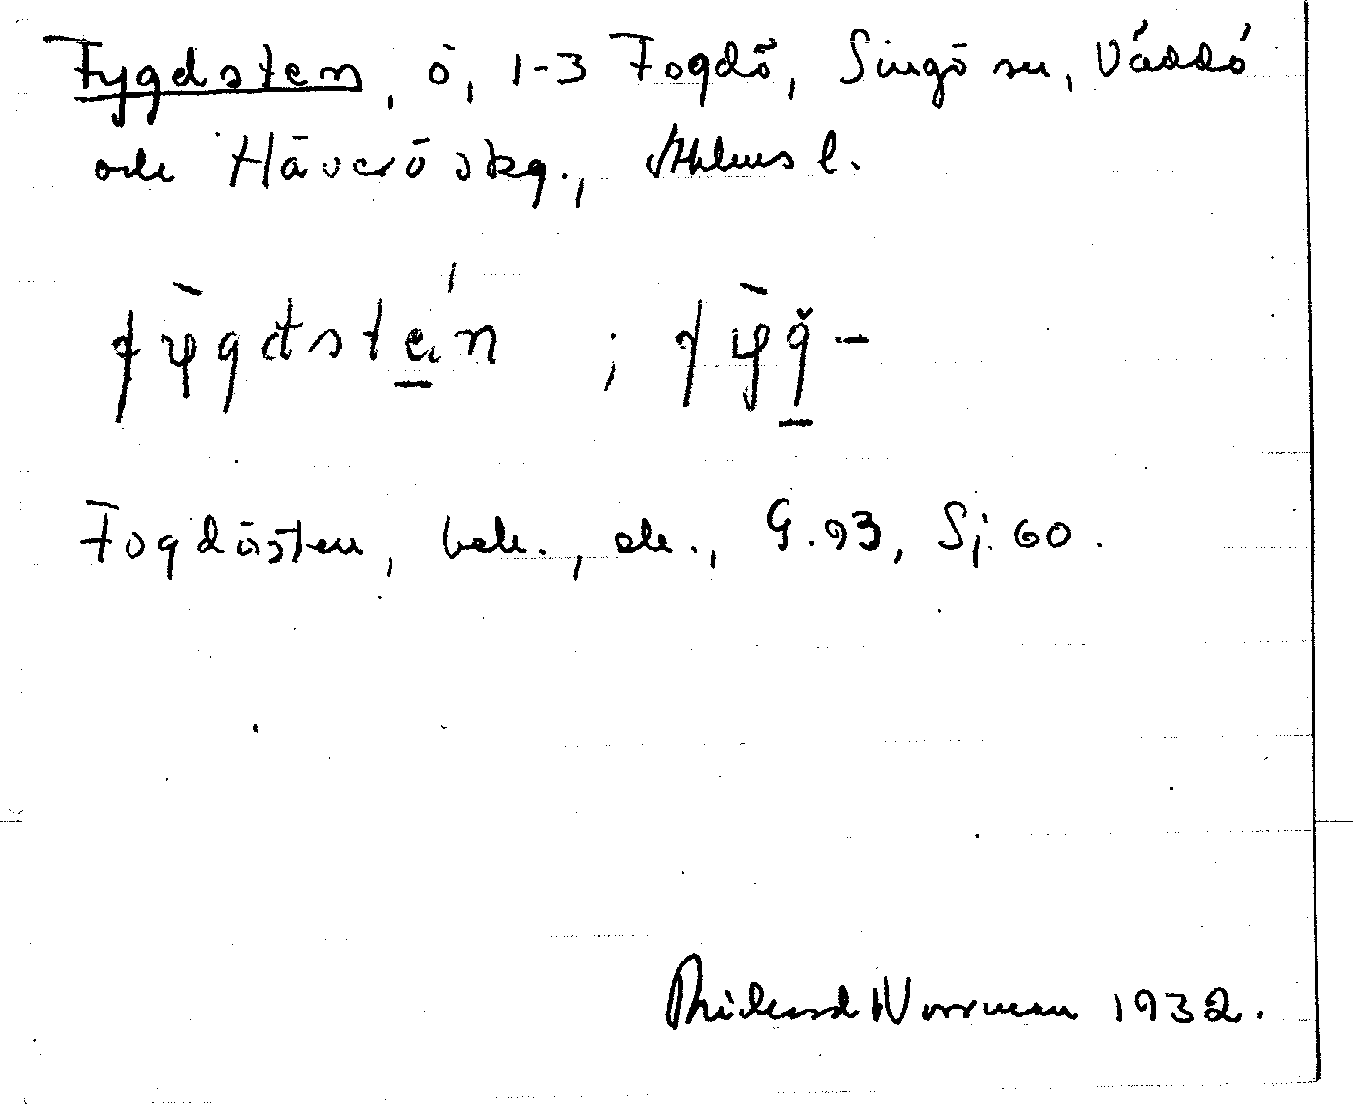 Fygdsten, ö, 1-3 Fogdö, Singö sn, Väddö
och Häverö skg., Sthlms l.
fỳgdsten ; fỳg-
Fogdösten, bek., ek., G.93, Sj. 60.
Rickard Norrman 1932.